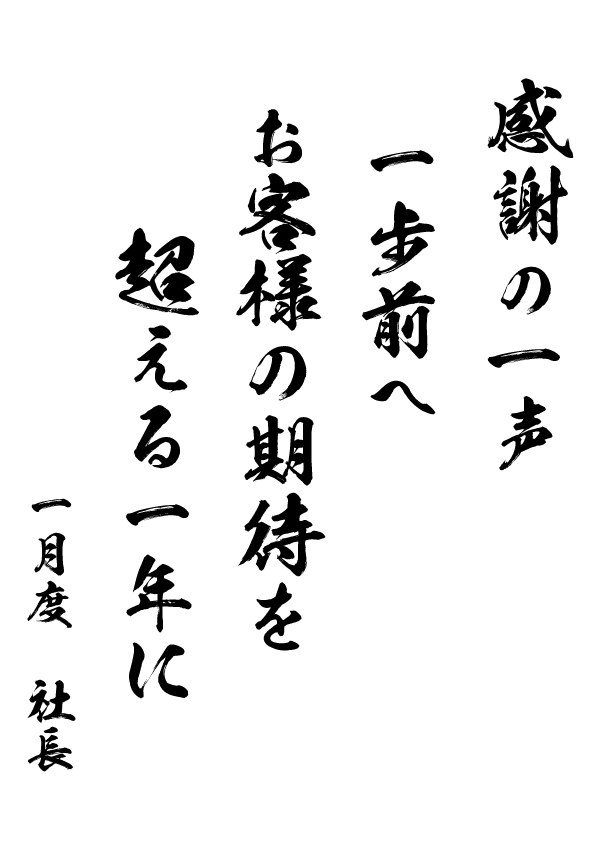 感謝の一声
一歩前へ
お客様の期待を
超える一年に
一月度　社長